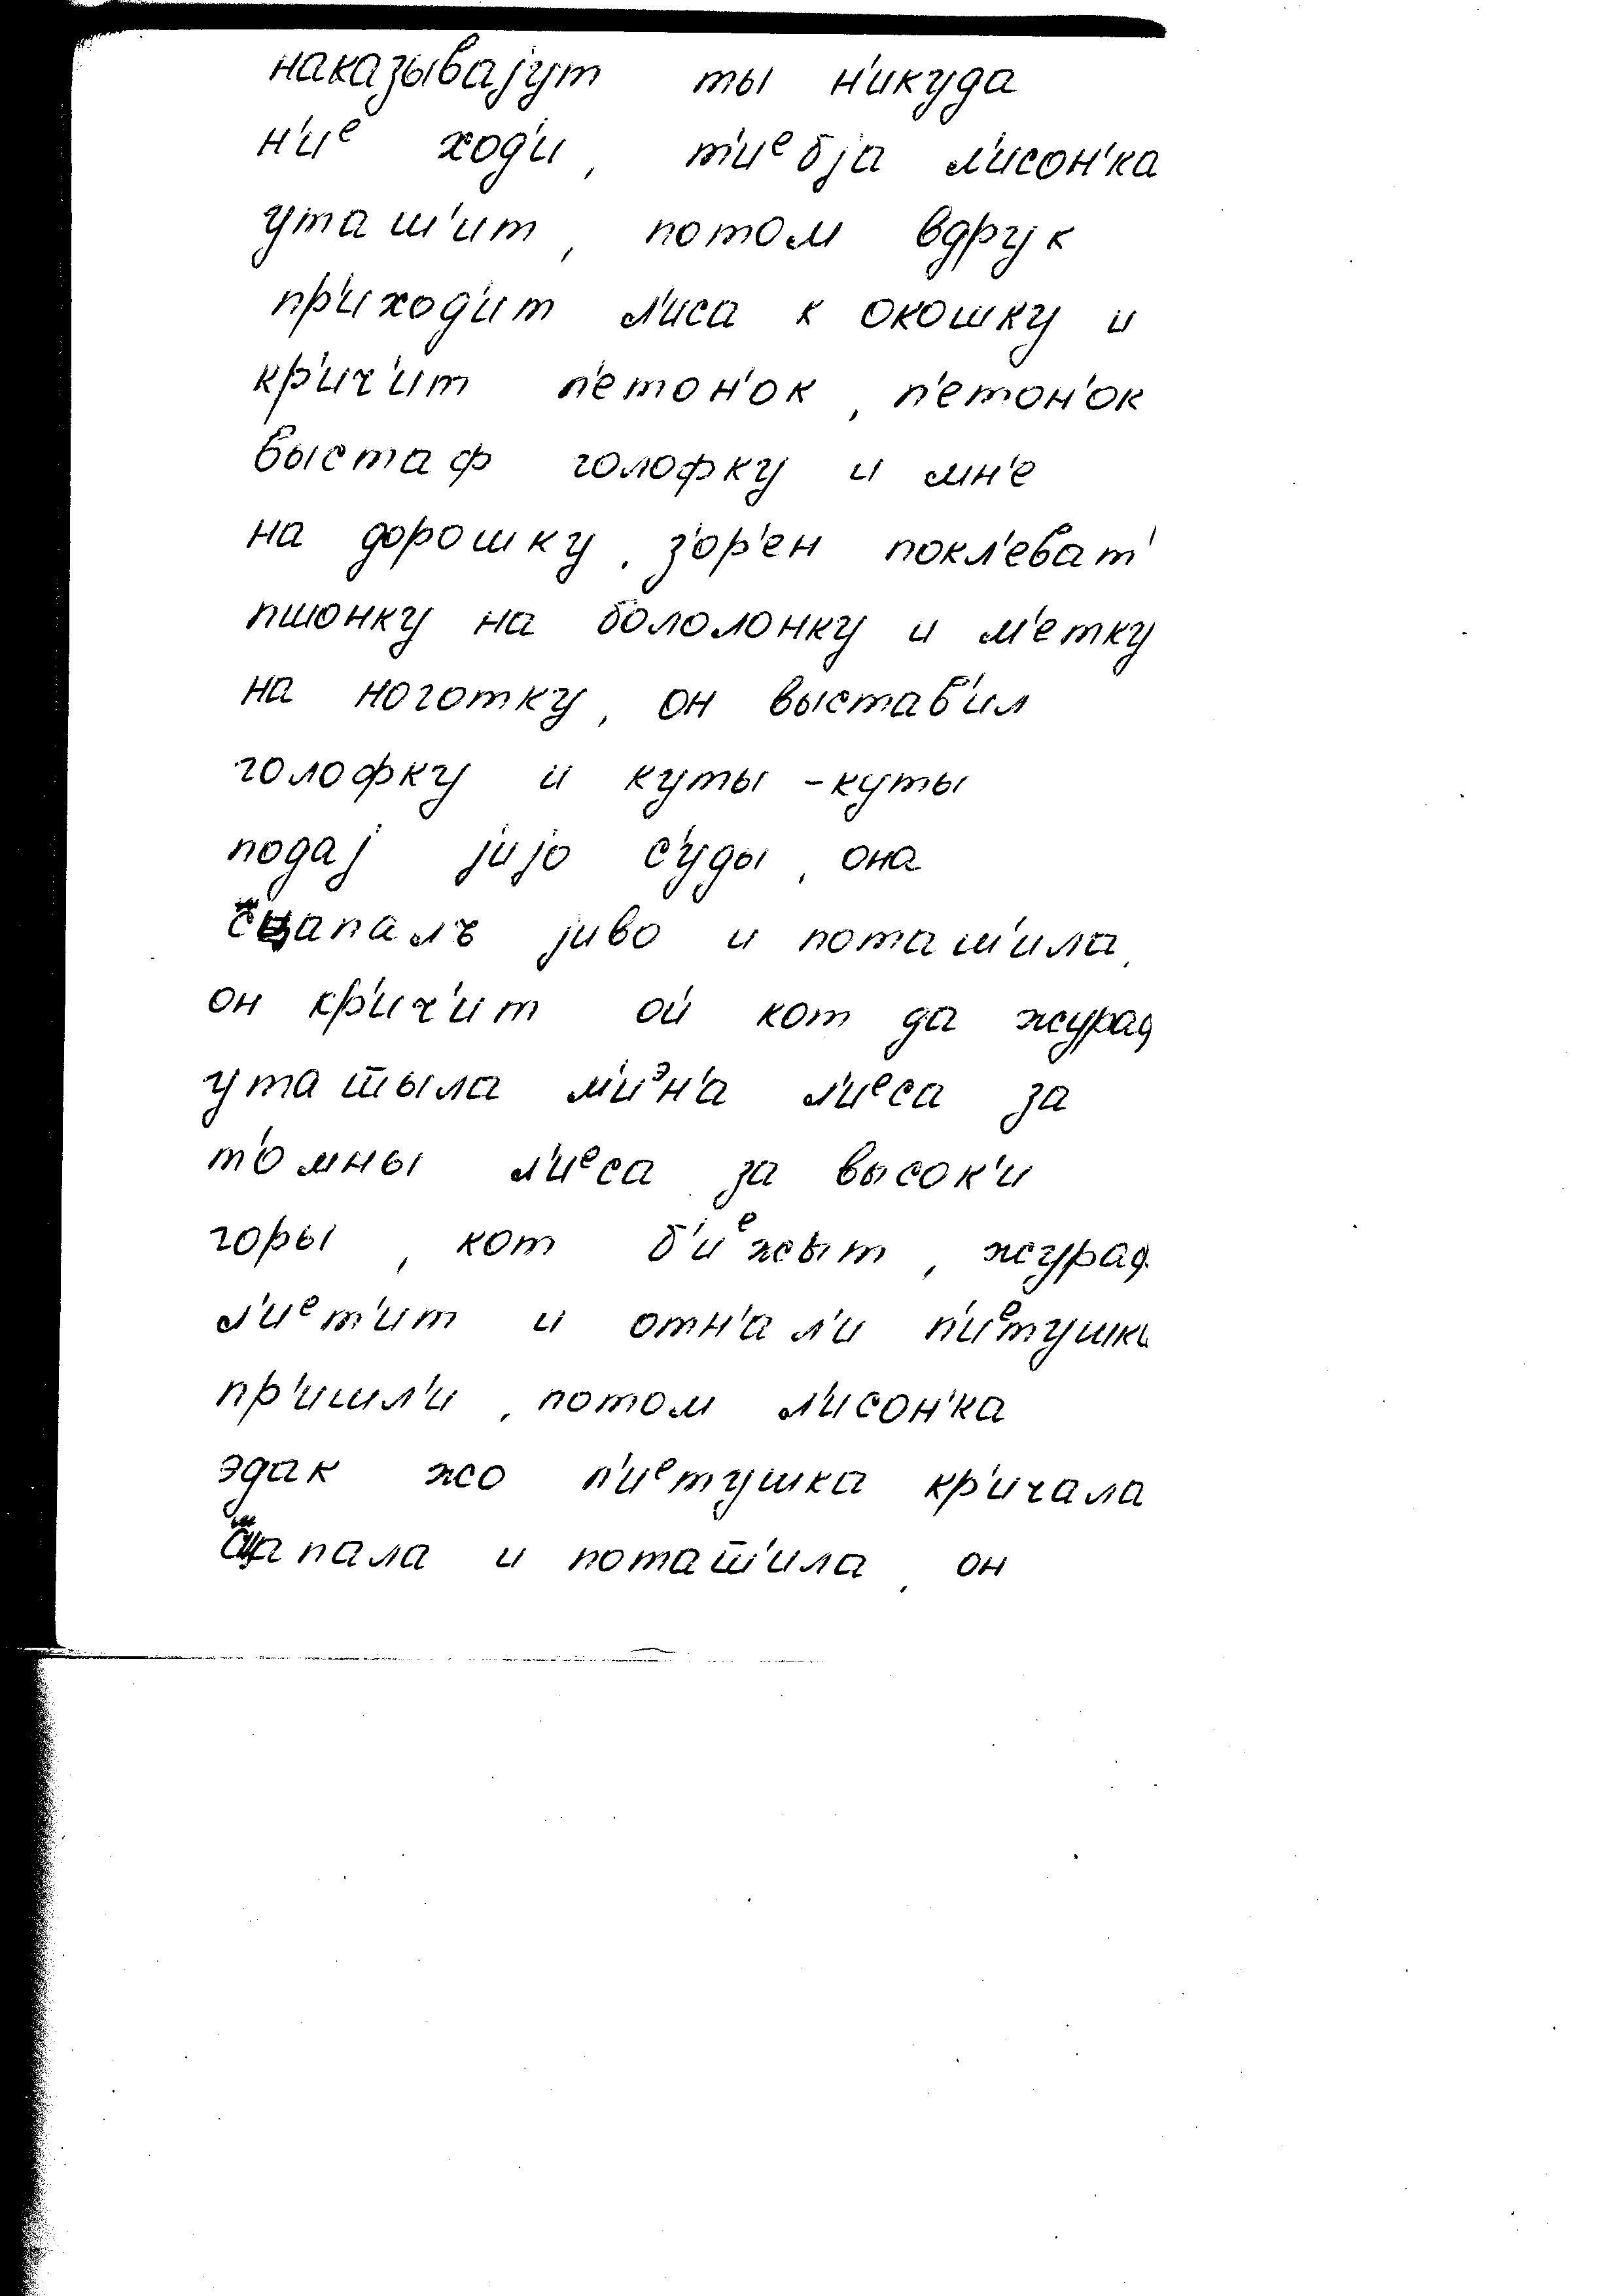 наказывајут ты н'икуда
н'иᵉ ход'и, т'иᵉбја л'исон'ка
уташ'ит, потом вдрук
пр'иход'ит л'иса к окошку и
кр'ич'ит п'етон'ок, п'етон'ок
выстаф голофку и мн'е
на дорошку, з'ор'ен покл'еват'
пшонку на бололонку и м'етку
на ноготку, он выстав'ил
голофку и куты-куты
подај јијо с'уды, она
јиво и поташ'ила,
он кр'ич'ит ой кот да журав
уташ̄ыла м'иᵉн'а л'иᵉса за
т'омны л'иᵉса за высок'и
горы, кот б'иᵉжыт, журав
л'иᵉт'ит и отн'ал'и п'иᵉтушка
пр'ишл'и, потом л'исон'ка
эдак жо п'иᵉтушка кр'ичала
и поташ̄'ила, он